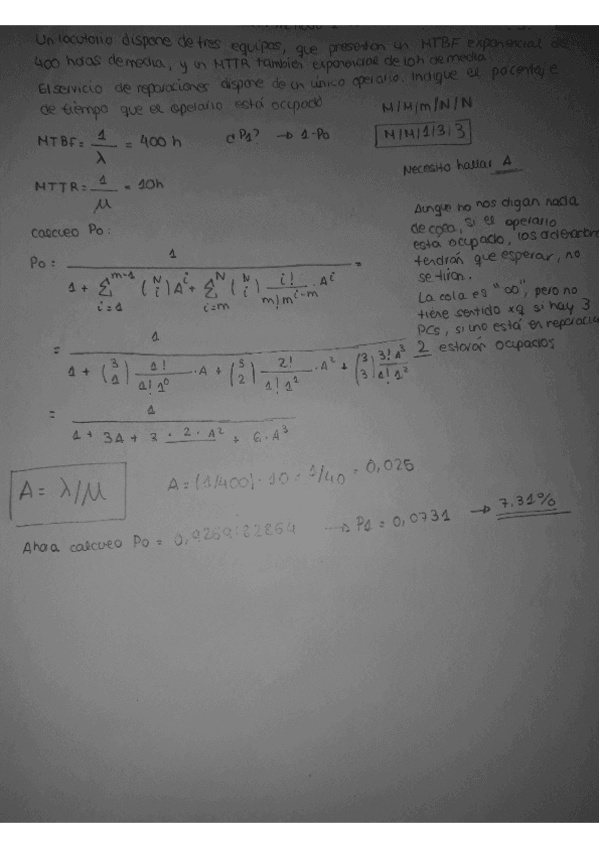 Un locutorio dispone de tres equipos, que presentan un MTBF exponencial de
400 horas de media, y un MTTR también exponencial de 10h de media.
El servicio de reparaciones dispone de un único operario. Indique el porcentaje
de tiempo que el operario está ocupado
M/M/m/N/N
MTBF = 1/λ = 400 h
¿P1? → 1-P0
M/M/1/3/3
Necesito hallar A
MTTR = 1/μ = 10h
Calculo P0:
Aunque no nos digan nada
de cola, si el operario
está ocupado, los
tendrán que esperar, no
se tiran.
La cola es "∞", pero no
tiene sentido xq si hay 3
PCs, si uno está en reparación
2 estarán ocupados
P0 = 1 / (1 + Σ_{i=1}^{m-1} (N i) A^i + Σ_{i=m}^{N} (N i) i!/(m! m^{i-m}) · A^i) =
= 1 / (1 + (3 1) 1!/(1! 1^0) · A + (3 2) 2!/(1! 1^1) · A^2 + (3 3) 3! A^3/(1! 1^2))
= 1 / (1 + 3A + 3 · 2 · A^2 + 6 · A^3)
A = λ/μ
A = (1/400) · 10 = 1/40 = 0,025
Ahora calculo P0 = → P1 = 0,0731 → 7.31%